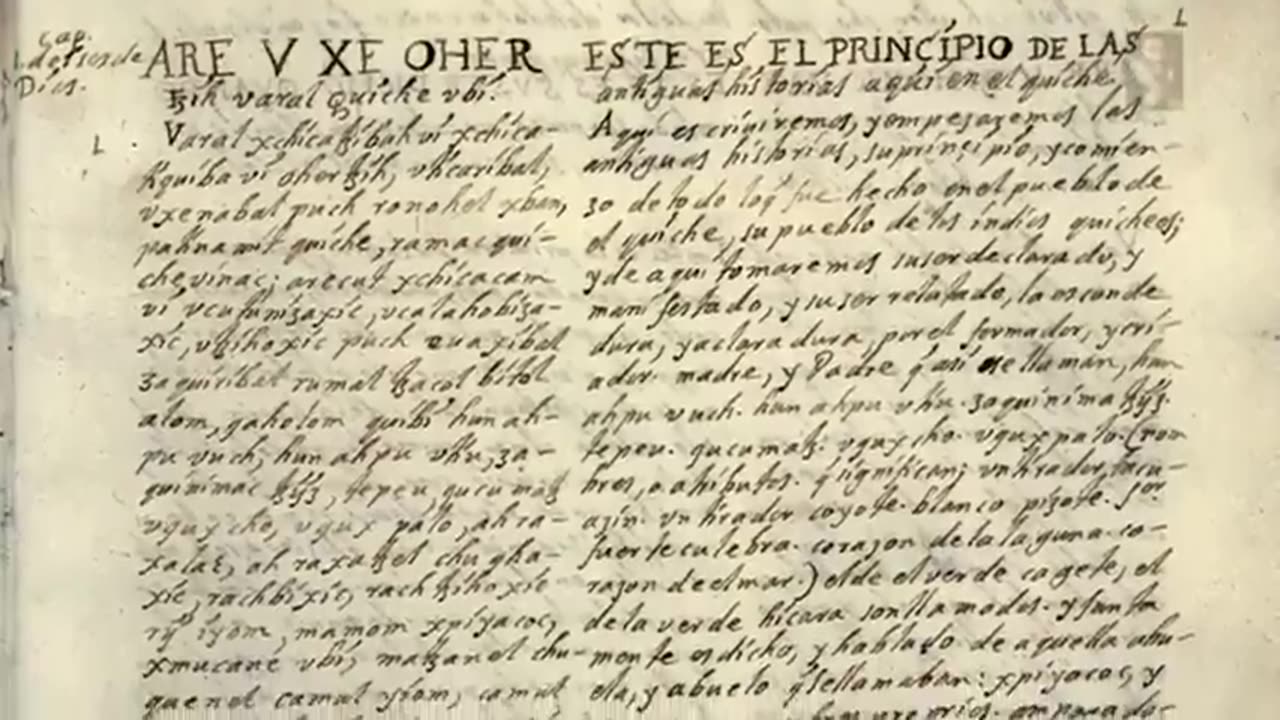 1
cap.
ARE V XE OHER
ꜩih varal quiche vbi.
Varal xchicatzibah vi xchica-
tiquiba vi oher tzih, vticaribal,
vxenabal puch ronohel xban,
pa tinamit quiche, ramac qui-
che vinac; arecut xchicacam
vi vcutunizaxic, vcalahobiza-
xic, vtzihoxic puch euaxibal
zaquiribal rumal tzacol bitol
alom, qaholom quibi hun ah-
pu vuch, hun ahpu vtiu, za-
quinimac tzyz, tepeu, qucumatz
vqux cho, vqux palo, ah ra-
xa lac, ah raxa tzel chugha-
xic, rachbixic, rach tzihoxic
ri iyom, mamom xpiyacoc,
xmucane vbi, matzanel chu-
quenel camul iyom, camul
ESTE ES EL PRINÇIPIO DE LAS
antiguas historias aqui en el quiche.
Aqui escriuiremos, y empezaremos las
antiguas historias, su prinçipio, y comien-
zo de todo lo q̃ fue hecho en el pueblo de
el quiche, su pueblo de los indios quichees;
y de aqui tomaremos su ser declarado, y
manifestado, y su ser relatado, la esconde
dura, y aclaradura, por el formador, y cri-
ador. madre, y Padre q̃ asi se llaman, hun
ahpu vuch. hun ahpu vtiu. zaquinima tzyz.
tepeu. qucumatz. vqux cho. vqux palo. (nom
bres, o atributos. q̃ significan; vn tirador tacu-
azin. vn tirador coyote. blanco pizote. for
fuerte culebra. corazon de la laguna. co-
razon de el mar.) el de el verde cagete, el
de la verde hicara son llamados. y junta
mente es dicho, y hablado de aquella abu-
ela, y abuelo q̃ se llamaban: xpiyacoc, y